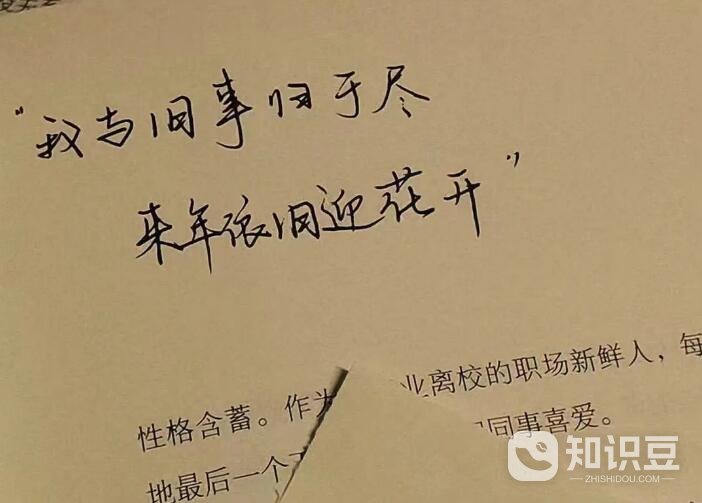 “我与旧事归于尽
来年依旧迎花开”
性格含蓄。作为 业离校的职场新鲜人，每
同事喜爱。
地最后一个
知识豆
ZHISHIDOU.COM